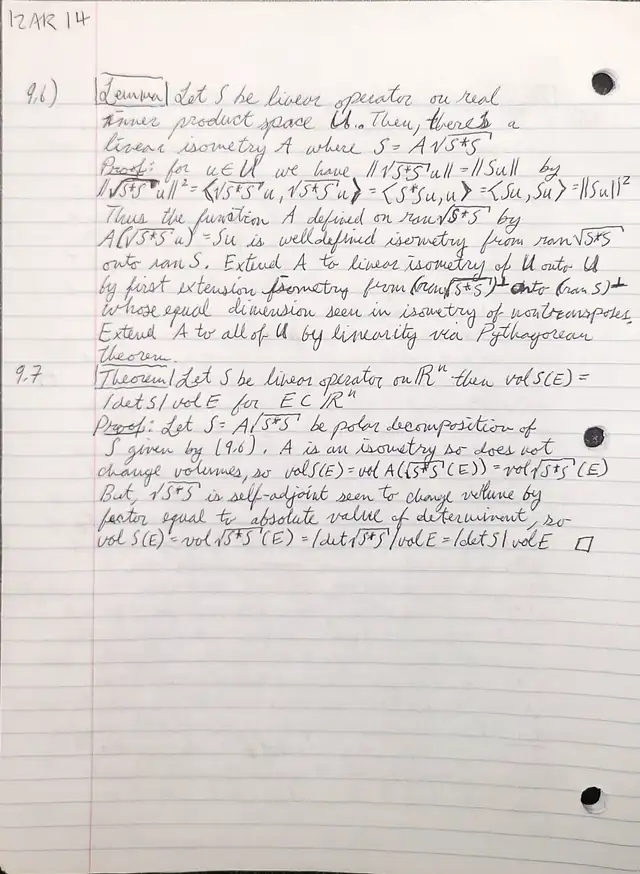 12AR 14
9.6) Lemma Let S be linear operator on real
inner product space U. Then, there's a
linear isometry A where S = A√S*S
Proof: for u∈U we have ||√S*S u|| = ||Su|| by
||√S*S u||² = ⟨√S*S u, √S*S u⟩ = ⟨S*Su, u⟩ = ⟨Su, Su⟩ = ||Su||²
Thus the function A defined on ran√S*S by
A(√S*S u) = Su is welldefined isometry from ran√S*S
onto ran S. Extend A to linear isometry of U onto U
by first extension isometry from (ran√S*S)⊥ onto (ran S)⊥
whose equal dimension seen in isometry of nontransposes.
Extend A to all of U by linearity via Pythagorean
theorem.
9.7 Theorem Let S be linear operator on ℝⁿ then vol S(E) =
|det S| vol E for E⊂ℝⁿ
Proof: Let S = A√S*S be polar decomposition of
S given by (9.6). A is an isometry so does not
change volumes, so vol S(E) = vol A(√S*S(E)) = vol√S*S(E)
But, √S*S is self-adjoint seen to change volume by
factor equal to absolute value of determinent, so
vol S(E) = vol√S*S(E) = |det√S*S| vol E = |det S| vol E □